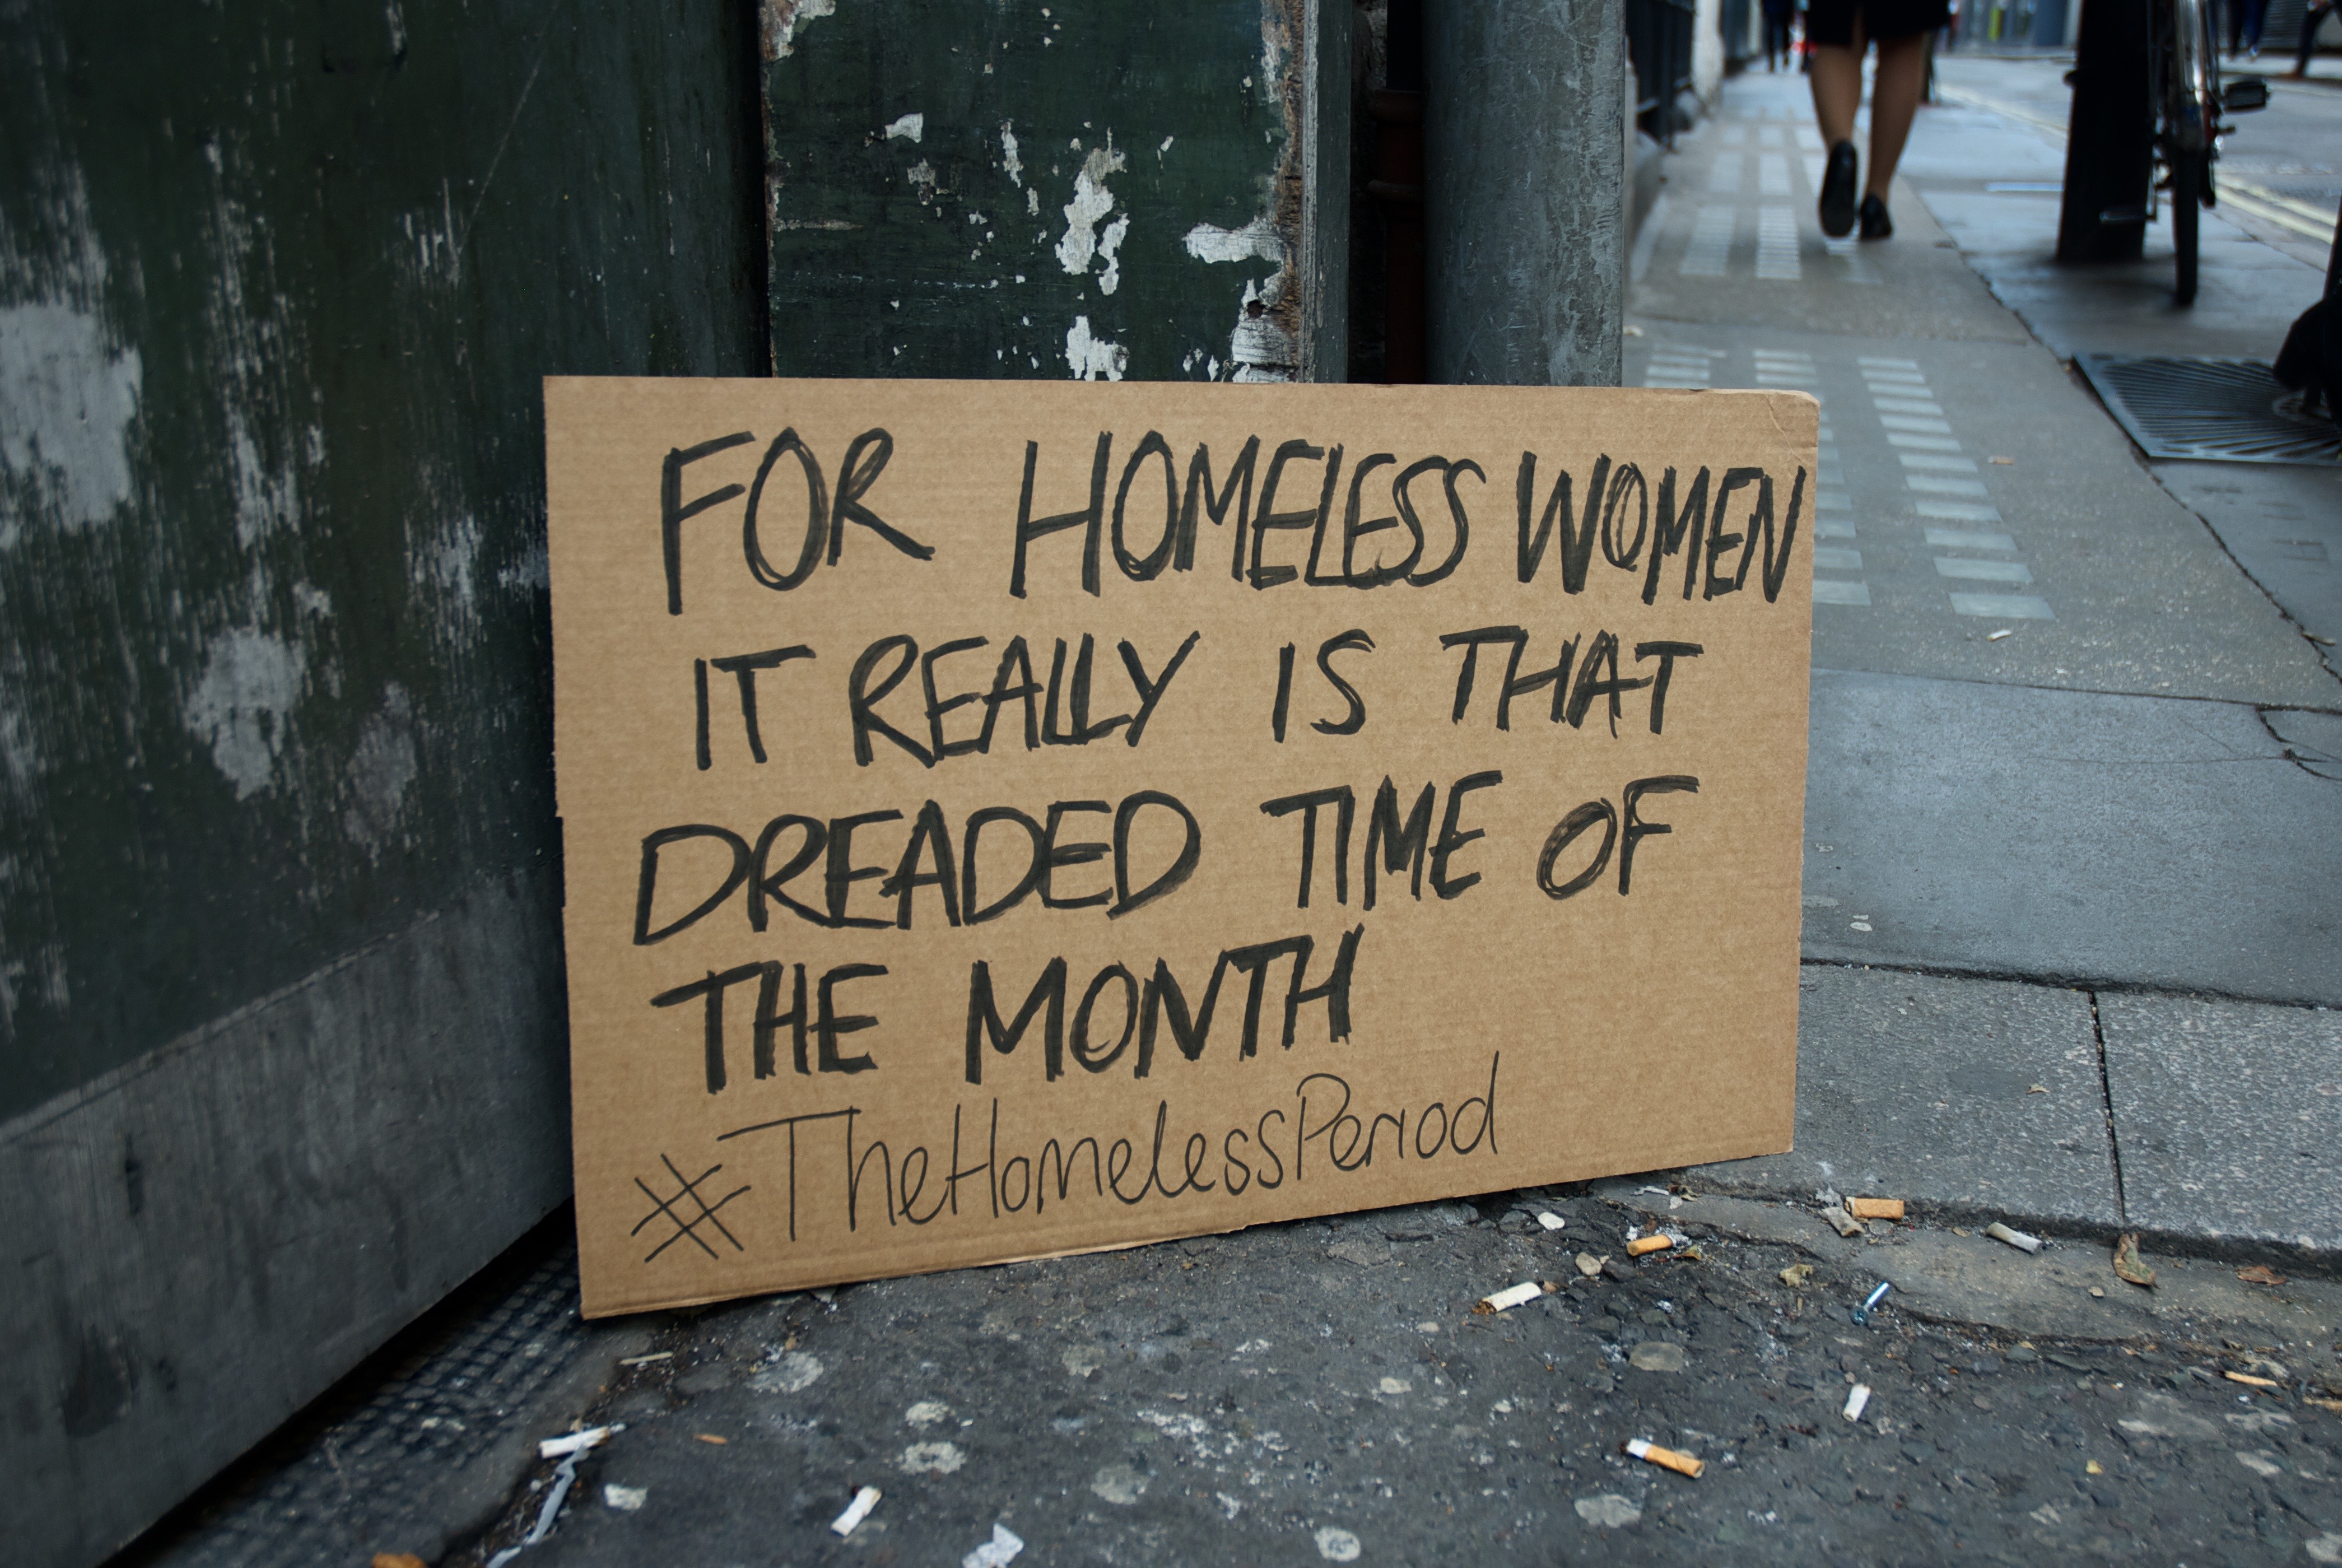 FOR HOMELESS WOMEN
IT REALLY IS THAT
DREADED TIME OF
THE MONTH
#TheHomelessPeriod